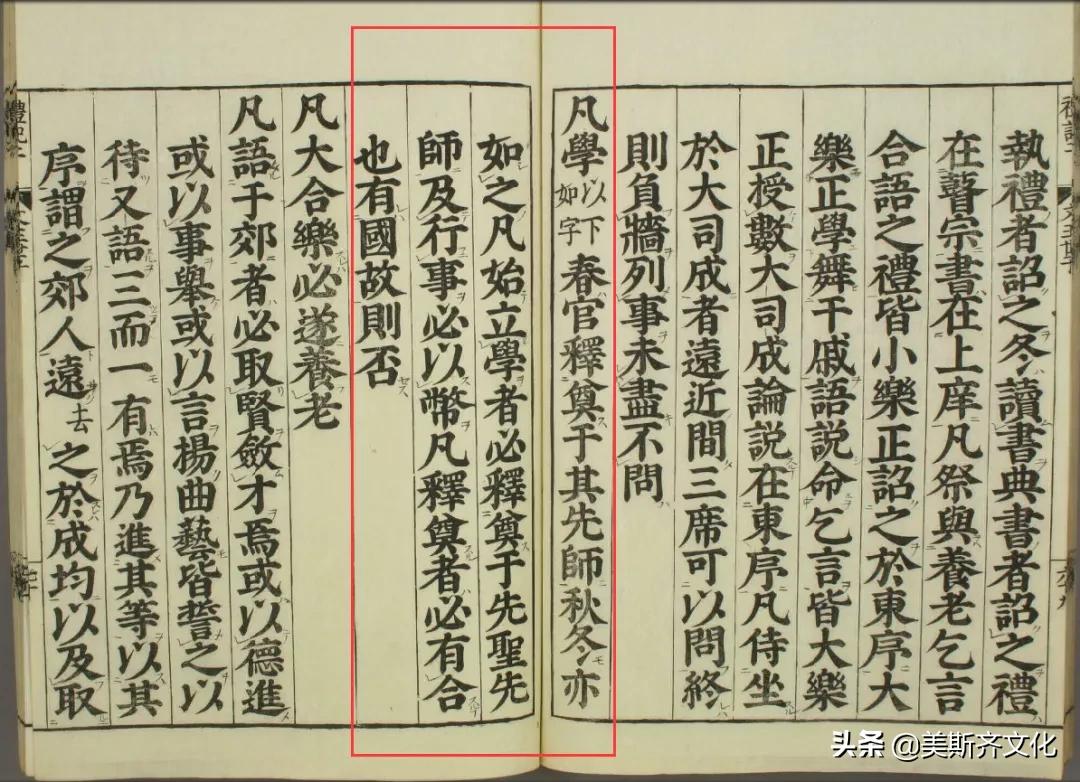 執禮者詔之冬讀書典書者詔之禮
在瞽宗書在上庠凡祭與養老乞言
合語之禮皆小樂正詔之於東序大
樂正學舞干戚語說命乞言皆大樂
正授數大司成論說在東序凡侍坐
於大司成者遠近間三席可以問終
則負牆列事未盡不問
凡學以下如字春官釋奠于其先師秋冬亦
如之凡始立學者必釋奠于先聖先
師及行事必以幣凡釋奠者必有合
也有國故則否
凡大合樂必遂養老
凡語于郊者必取賢斂才焉或以德進
或以事舉或以言揚曲藝皆誓之以
待又語三而一有焉乃進其等以其
序謂之郊人遠去之於成均以及取
头条 @美斯齐文化